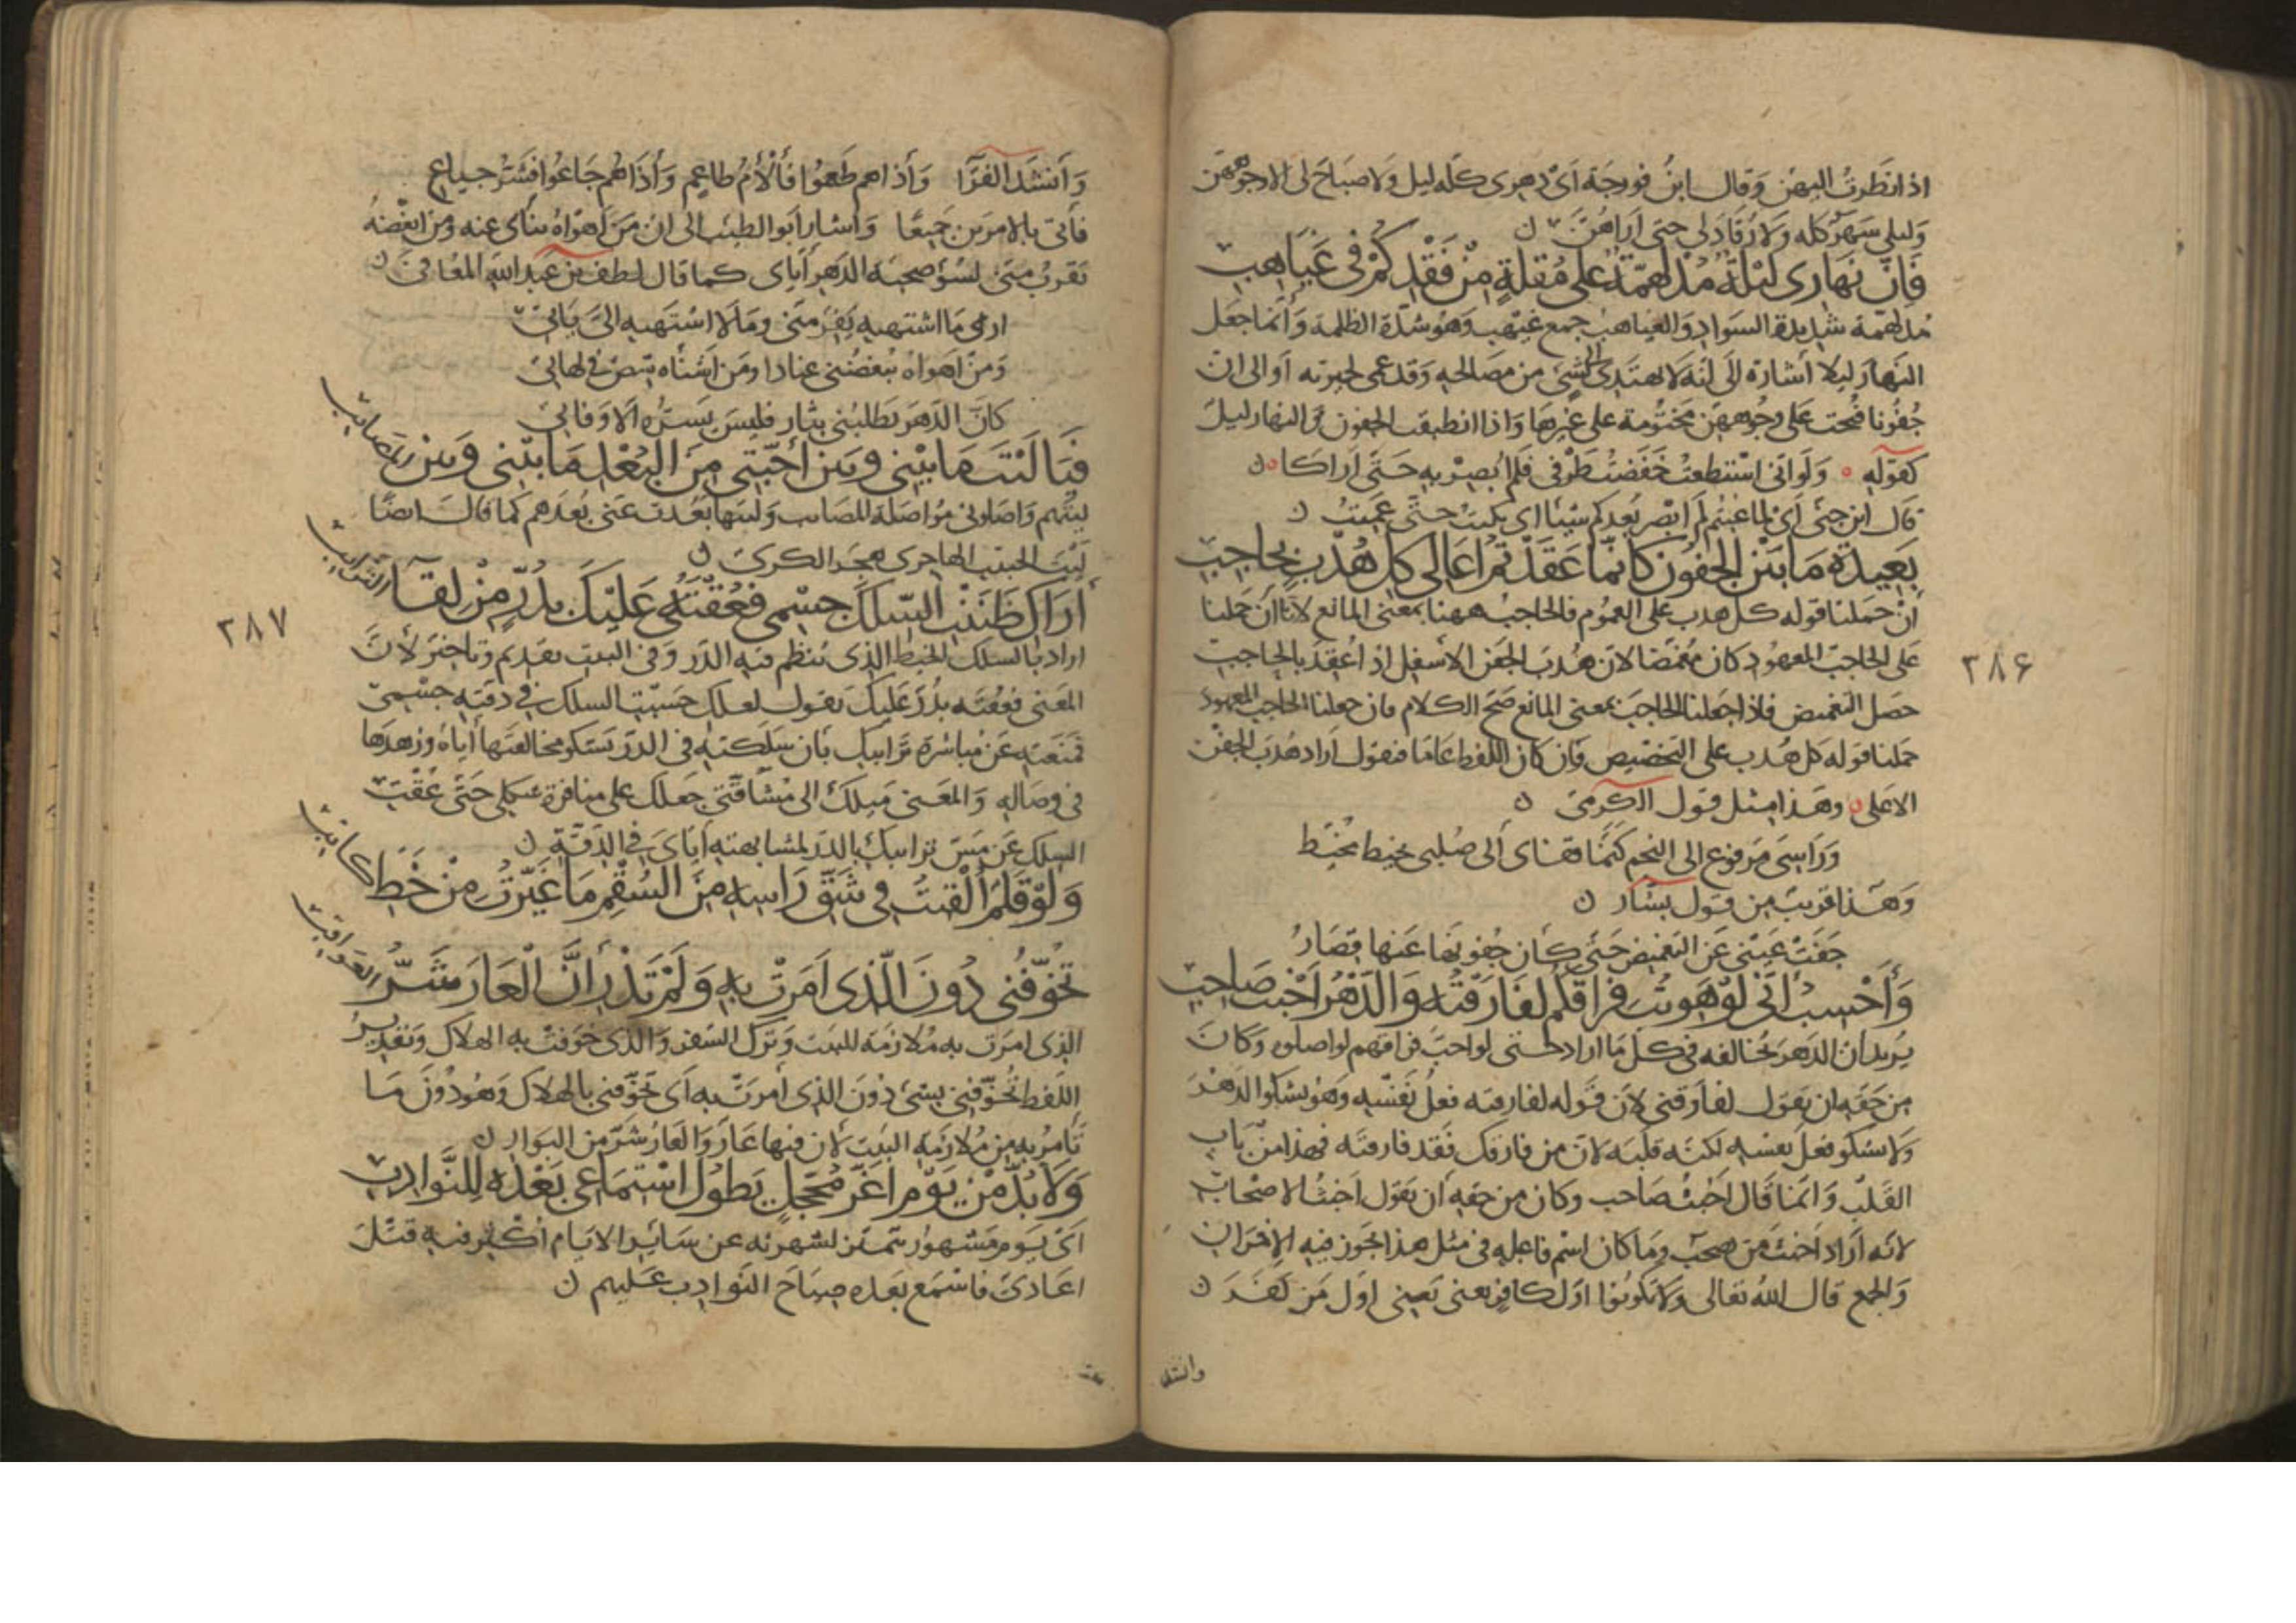 اذا نظرت اليهن وقال ابن فورجة اى دهرى كله ليل ولا صباح لى الا وجوههن
وليلى سهر كله ولا رقاد لى حتى اراهن
فَاِنَّ نَهَارِى لَيْلَةٌ مُدْلَهِمَّةٌ عَلَى مُقْلَةٍ مِنْ فَقْدِكُمْ فِى غَيَاهِبِ
مدلهمة شديدة السواد والغياهب جمع غيهب وهو شدة الظلمة وانما جعل
النهار ليلا اشارة الى انه لا يهتدى الى شئ من مصالحه وقد عمى لحيرته او الى ان
جفونا فتحت على وجوههن مختومة على غيرها واذا انطبقت الجفون فالنهار ليل
كقوله ولو انى استطعت خفضت طرفى فلم ابصر به حتى اراكا
قال ابن جنى اى لما غبتم لم ابصر بعدكم شيئا اى بكيت حتى عميت
بَعِيدَةِ مَا بَيْنَ الْجُفُونِ كَاَنَّمَا عَقَدْتُمْ اَعَالِى كُلِّ هُدْبٍ بِحَاجِبِ
ان حملنا قوله كل هدب على العموم فالحاجب ههنا بمعنى المانع لانا ان حملنا
على الحاجب المعهود كان مغمضا لان هدب الجفن الاسفل اذا عقد بالحاجب
حصل التغميض فاذا جعلنا الحاجب بمعنى المانع صح الكلام فان جعلنا الحاجب المعهود
حملنا قوله كل هدب على التخصيص وان كان اللفظ عاما فنقول اراد هدب الجفن
الاعلى وهذا مثل قول الكرمى
وراسى مرفوع الى النجم كنما قفاى الى صلبى بخيط مخيط
وهذا قريب من قول بشار
جفت عينى عن التغميض حتى كان جفونها عنها قصار
وَاَحْسِبُ اَنِّى لَوْ هَوِيتُ فِرَاقَكُمْ لَفَارَقْتُهُ وَالدَّهْرُ اَخْبَثُ صَاحِبِ
يريد ان الدهر يخالفه فى كل ما اراد حتى لو احب فراقهم لواصلوه وكان
من حقه ان يقول لفارقنى لان قوله لفارقته فعل نفسه وهو يشكوا الدهر
ولا يشكو فعل نفسه لكنه قلبه لان من فارقك فقد فارقته فهذا من باب
القلب وانما قال اخبث صاحب وكان من حقه ان يقول اخبث الاصحاب
لانه اراد اخبث من صحب وما كان اسم فاعله فى مثل هذا يجوز فيه الافراد
والجمع قال الله تعالى ولا تكونوا اول كافر يعنى اول من كفر
وانشد
٢٨۶
وانشد الفرا واذا هم طعموا فألأم طاعم واذا هم جاعوا فشر جياع
فأتى بالامرين جميعا واشار ابو الطيب الى ان من اهواه ينأى عنه ومن ابغضه
يقرب منى لسؤ صحبة الدهر اياى كما قال لطف بن عبد الله المعافى
ارى ما اشتهيه يفر منى وما لا اشتهيه الى يأتى
ومن اهواه يبغضنى عنادا ومن اشناه شص فى لهاتى
كأن الدهر يطلبنى بثار فليس يسره الا وفاتى
فَيَا لَيْتَ مَا بَيْنِى وَبَيْنَ اَحِبَّتِى مِنَ الْبُعْدِ مَا بَيْنِى وَبَيْنَ الْمَصَائِبِ
ليتهم واصلونى مواصلة المصائب وليتها بعدت عنى بعدهم كما قال ايضا
ليت الحبيب الهاجرى هجر الكرى
اَرَاكِ ظَنَنْتِ السِّلْكَ جِسْمِى فَعُقْتِهِ عَلَيْكِ بِدُرٍّ مِنْ لِقَآءِ التَّرَائِبِ
اراد بالسلك الخيط الذى ينظم فيه الدر وفى البيت تقديم وتاخير لان
المعنى فعقته بدر عليك يقول لعلك حسبت السلك فى دقته جسمى
فمنعته عن مباشرة ترايبك بان سلكته فى الدر يشكو مخالفتها اياه وزهدها
فى وصاله والمعنى ميلك الى مشاقتى جعلك على منافرة شكلى حتى عقت
السلك عن مس ترايبك بالدر لمشابهته اياى فى الدقة
وَلَوْ قَلَمٌ اُلْقِيتُ فِى شَقِّ رَاسِهِ مِنَ السُّقْمِ مَا غَيَّرْتُ مِنْ خَطِّ كَاتِبِ
تُخَوِّفُنِى دُونَ الَّذِى اَمَرَتْ بِهِ وَلَمْ تَدْرِ اَنَّ الْعَارَ شَرُّ الْعَوَاقِبِ
الذى امرت به ملازمة البيت وترك السفر والذى خوفت به الهلاك وتقدير
اللفظ تخوفنى بشئ دون الذى امرت به اى تخوفنى بالهلاك وهو دون ما
تأمر به من ملازمة البيت لان فيها عار والعار شر من البوار
وَلَا بُدَّ مِنْ يَوْمٍ اَغَرَّ مُحَجَّلٍ يَطُولُ اسْتِمَاعِى بَعْدَهُ لِلنَّوَادِبِ
اى يوم مشهور يتميز لشهرته عن سائر الايام اكثر فيه قتل
اعادى فاسمع بعده صياح النوادب عليهم
٢٨٧